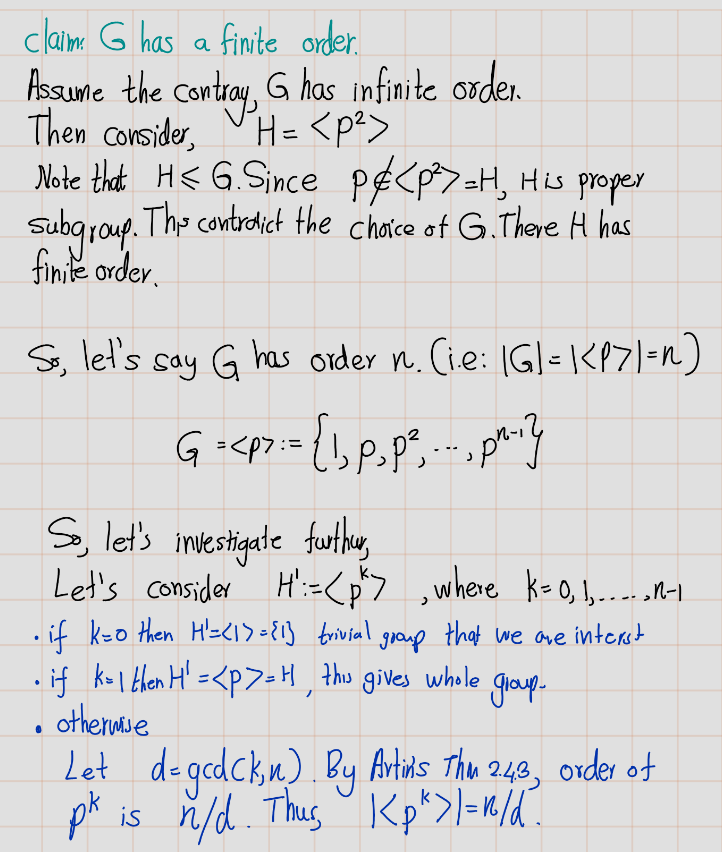 claim: G has a finite order.
Assume the contray, G has infinite order.
Then consider, H = <p²>
Note that H ≤ G. Since p ∉ <p²> = H, H is proper
subgroup. This contradict the choice of G. There H has
finite order.
So, let's say G has order n. (i.e: |G| = |<p>| = n)
G = <p> := {1, p, p², ..., pⁿ⁻¹}
So, let's investigate furthur,
Let's consider H' := <pᵏ> , where k = 0, 1, ....., n-1
• if k=0 then H' = <1> = {1} trivial group that we are interst
• if k=1 then H' = <p> = H , this gives whole group.
• otherwise
Let d = gcd(k,n). By Artin's Thm 2.4.3, order of
pᵏ is n/d. Thus, |<pᵏ>| = n/d.